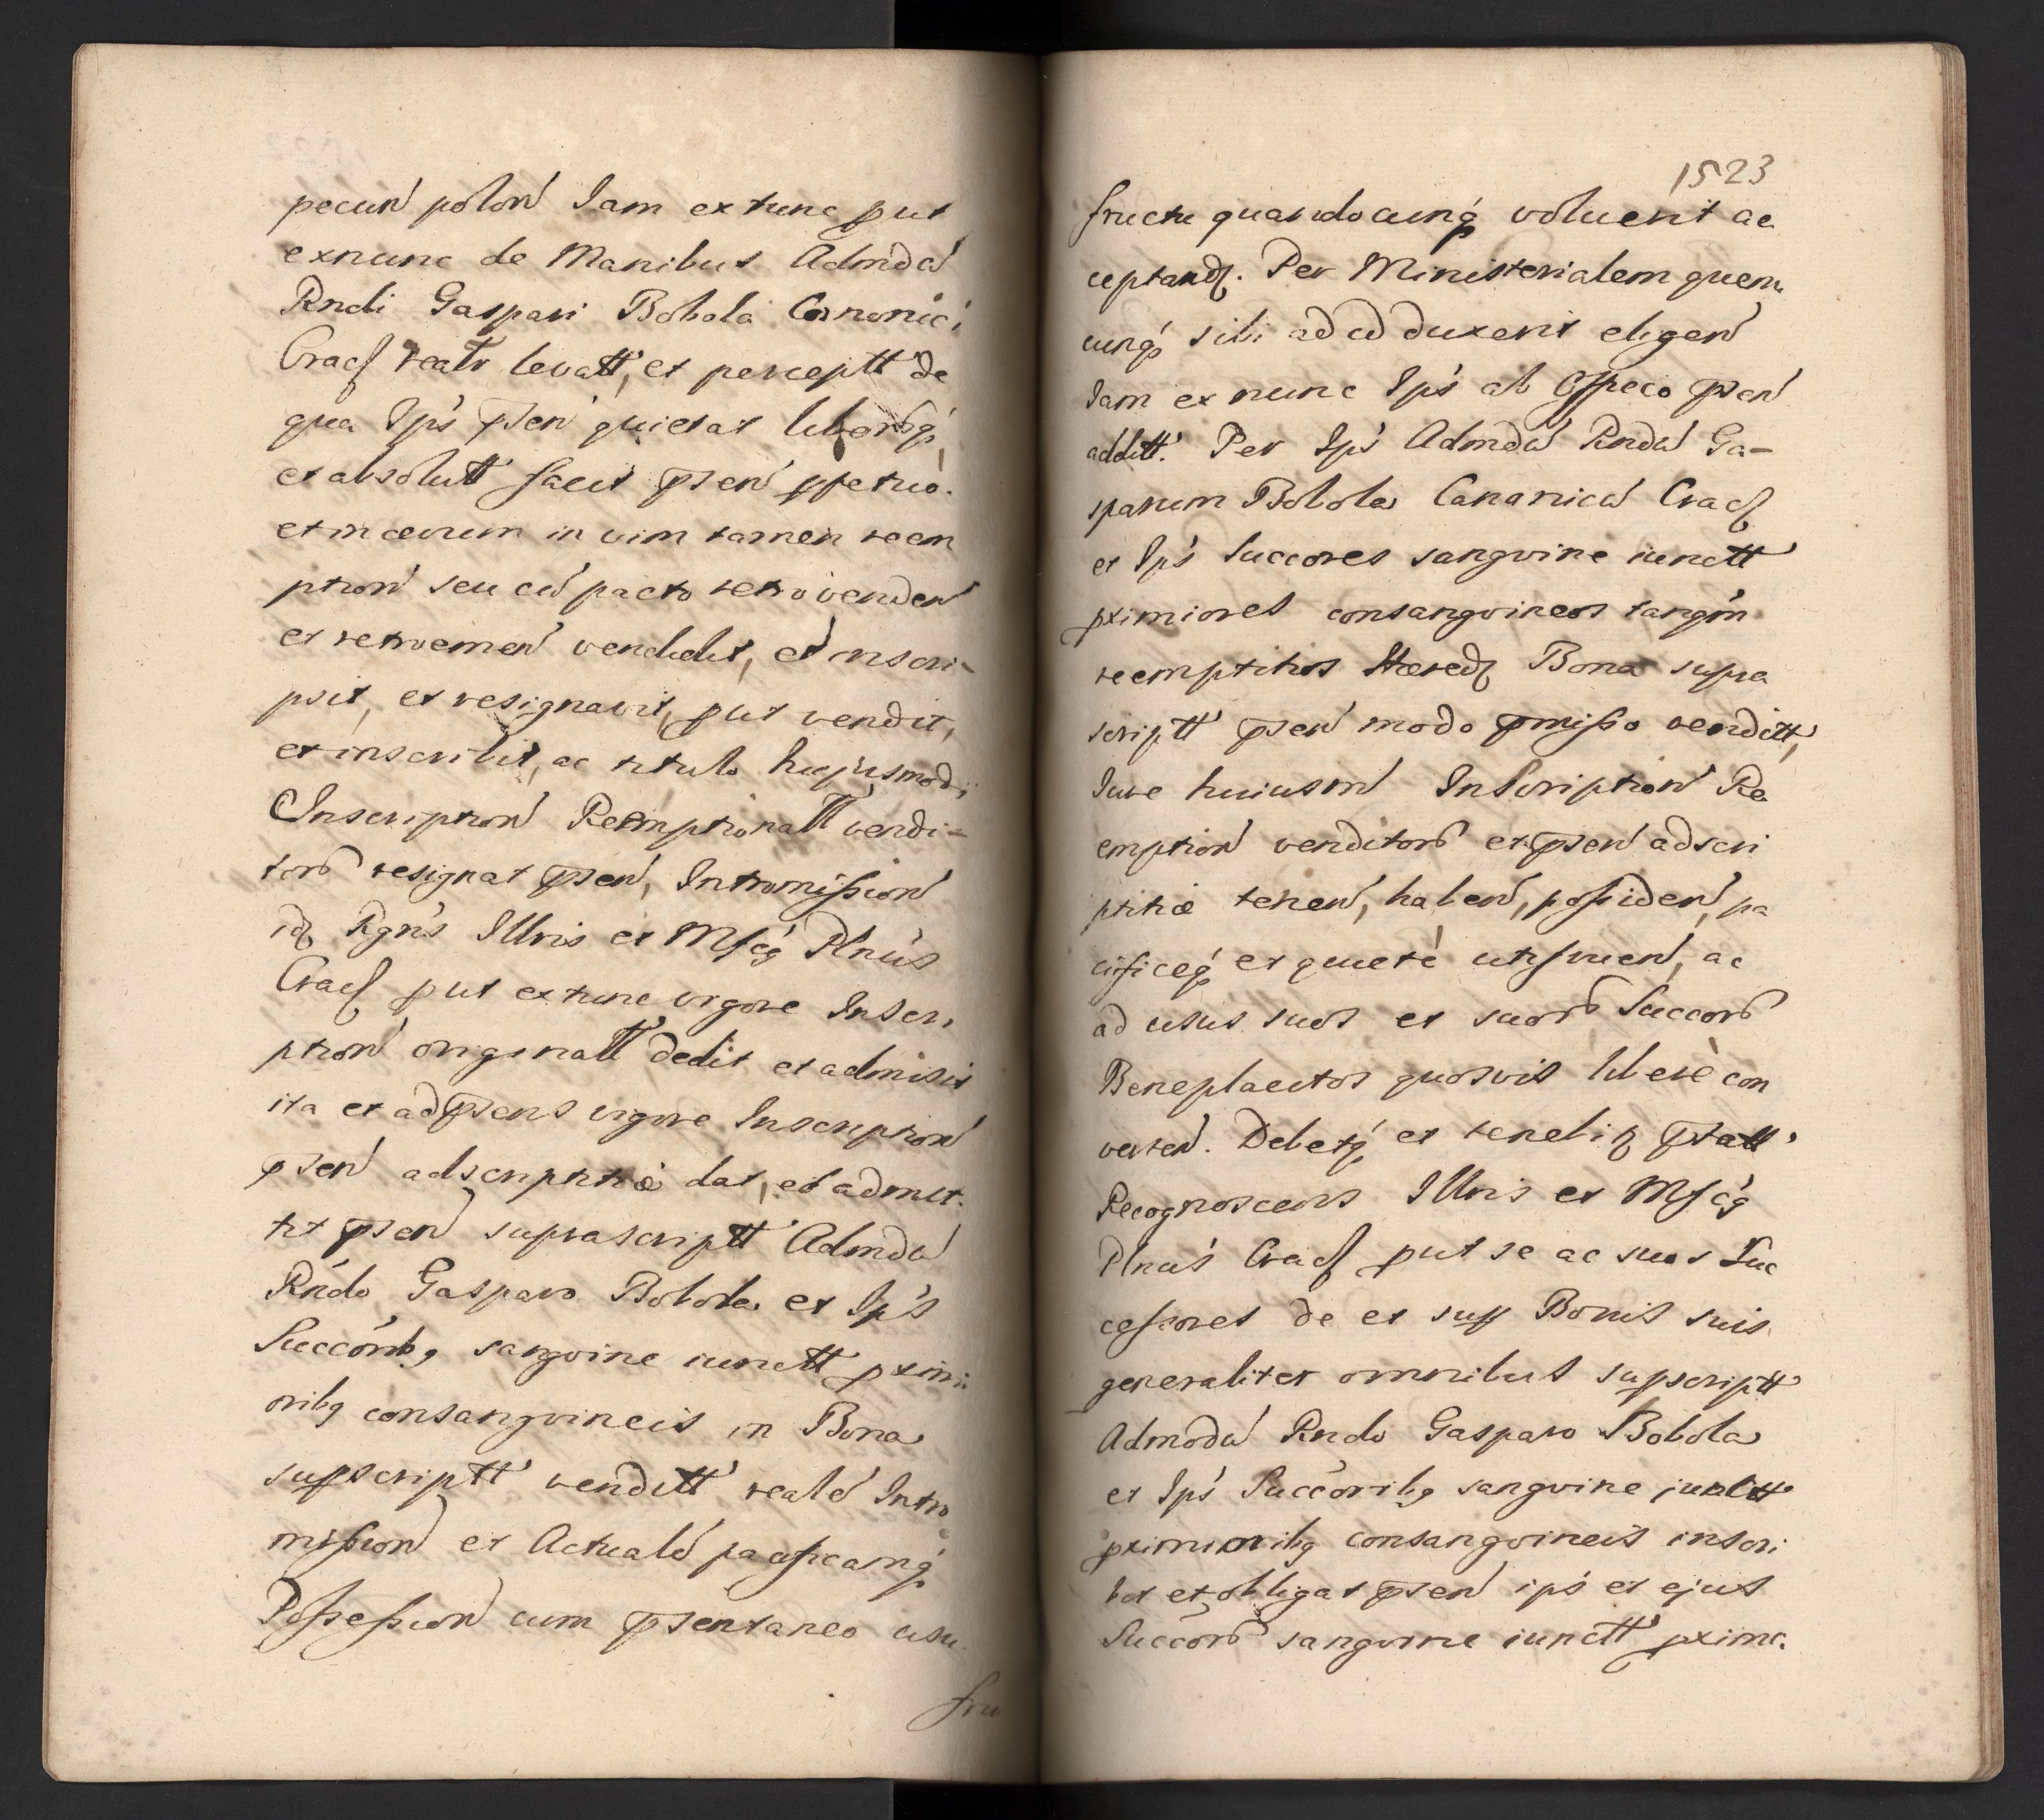 pecuń poloń Iam extunc put
exnunc de Manibus Admdũ
Rndi Gaspari Bobola Canonici
Crac realr levatt, et perceptt de
qua Ips psen quietat liborq
et absolutt facit psen ppetuo.
et in œvum in vim tamen reem
ption seu cũ pacto retrovenden
et retroemen vendidit, et inscri-
psit, et resignavit, put vendit,
et inscribit, ac titulo hujusmodi
Inscription Reemptionall vendi-
tors resignat psen, Intromission
idq Rgnis Illris et Mfcg Plnus
Crac put extunc vigore Inscri
ption originall dedit et admisit
ita et ad psens vigore Inscription
psen adscriptitiæ dat, et admit.
tit psen suprascriptt Admdũ
Rndo Gasparo Bobola et Ips
Succōribq sangvine iunctt pximi
oribq consangvineis in Bona
supscriptt venditt reale Intro
mission et Actuale pacificamq
Possession cum psentaneo usu
fru
1523
fructu quandocunq voluerit ac
ceptand. Per Ministerialem quem
cunq sibi ad id duxerit eligen
Iam ex nunc Ips ab Officio psen
additt. Per Ips Admdũ Rndũ Ga-
sparum Bobola Canonicũ Crac
et Ips Succores sangvine iunctt
pximiores consangvineos tanqm
reemptitios Hæred Bona supra
scriptt psen modo pmisso venditt,
Iure huiusm Inscription Re
emption venditors et psen adscri
ptitiæ tenen, haben, possiden, pa
cificeq et quiete utifruen, ac
ad usus suos et suors Succors
Beneplacitos quosvis libere con
verten. Debetq et tenebit pstatt
Recognoscens Illris et Mfcg
Plnus Crac put se ac suos Suc
cessores de et sup Bonis suis
generaliter omnibus supscriptt
Admodũ Rndo Gasparo Bobola
et Ips Succōribq sangvine junctt
pximioribq consangvineis inscri
bit et obligat psen ips et ejus
Succors sangvine iunctt pximi.